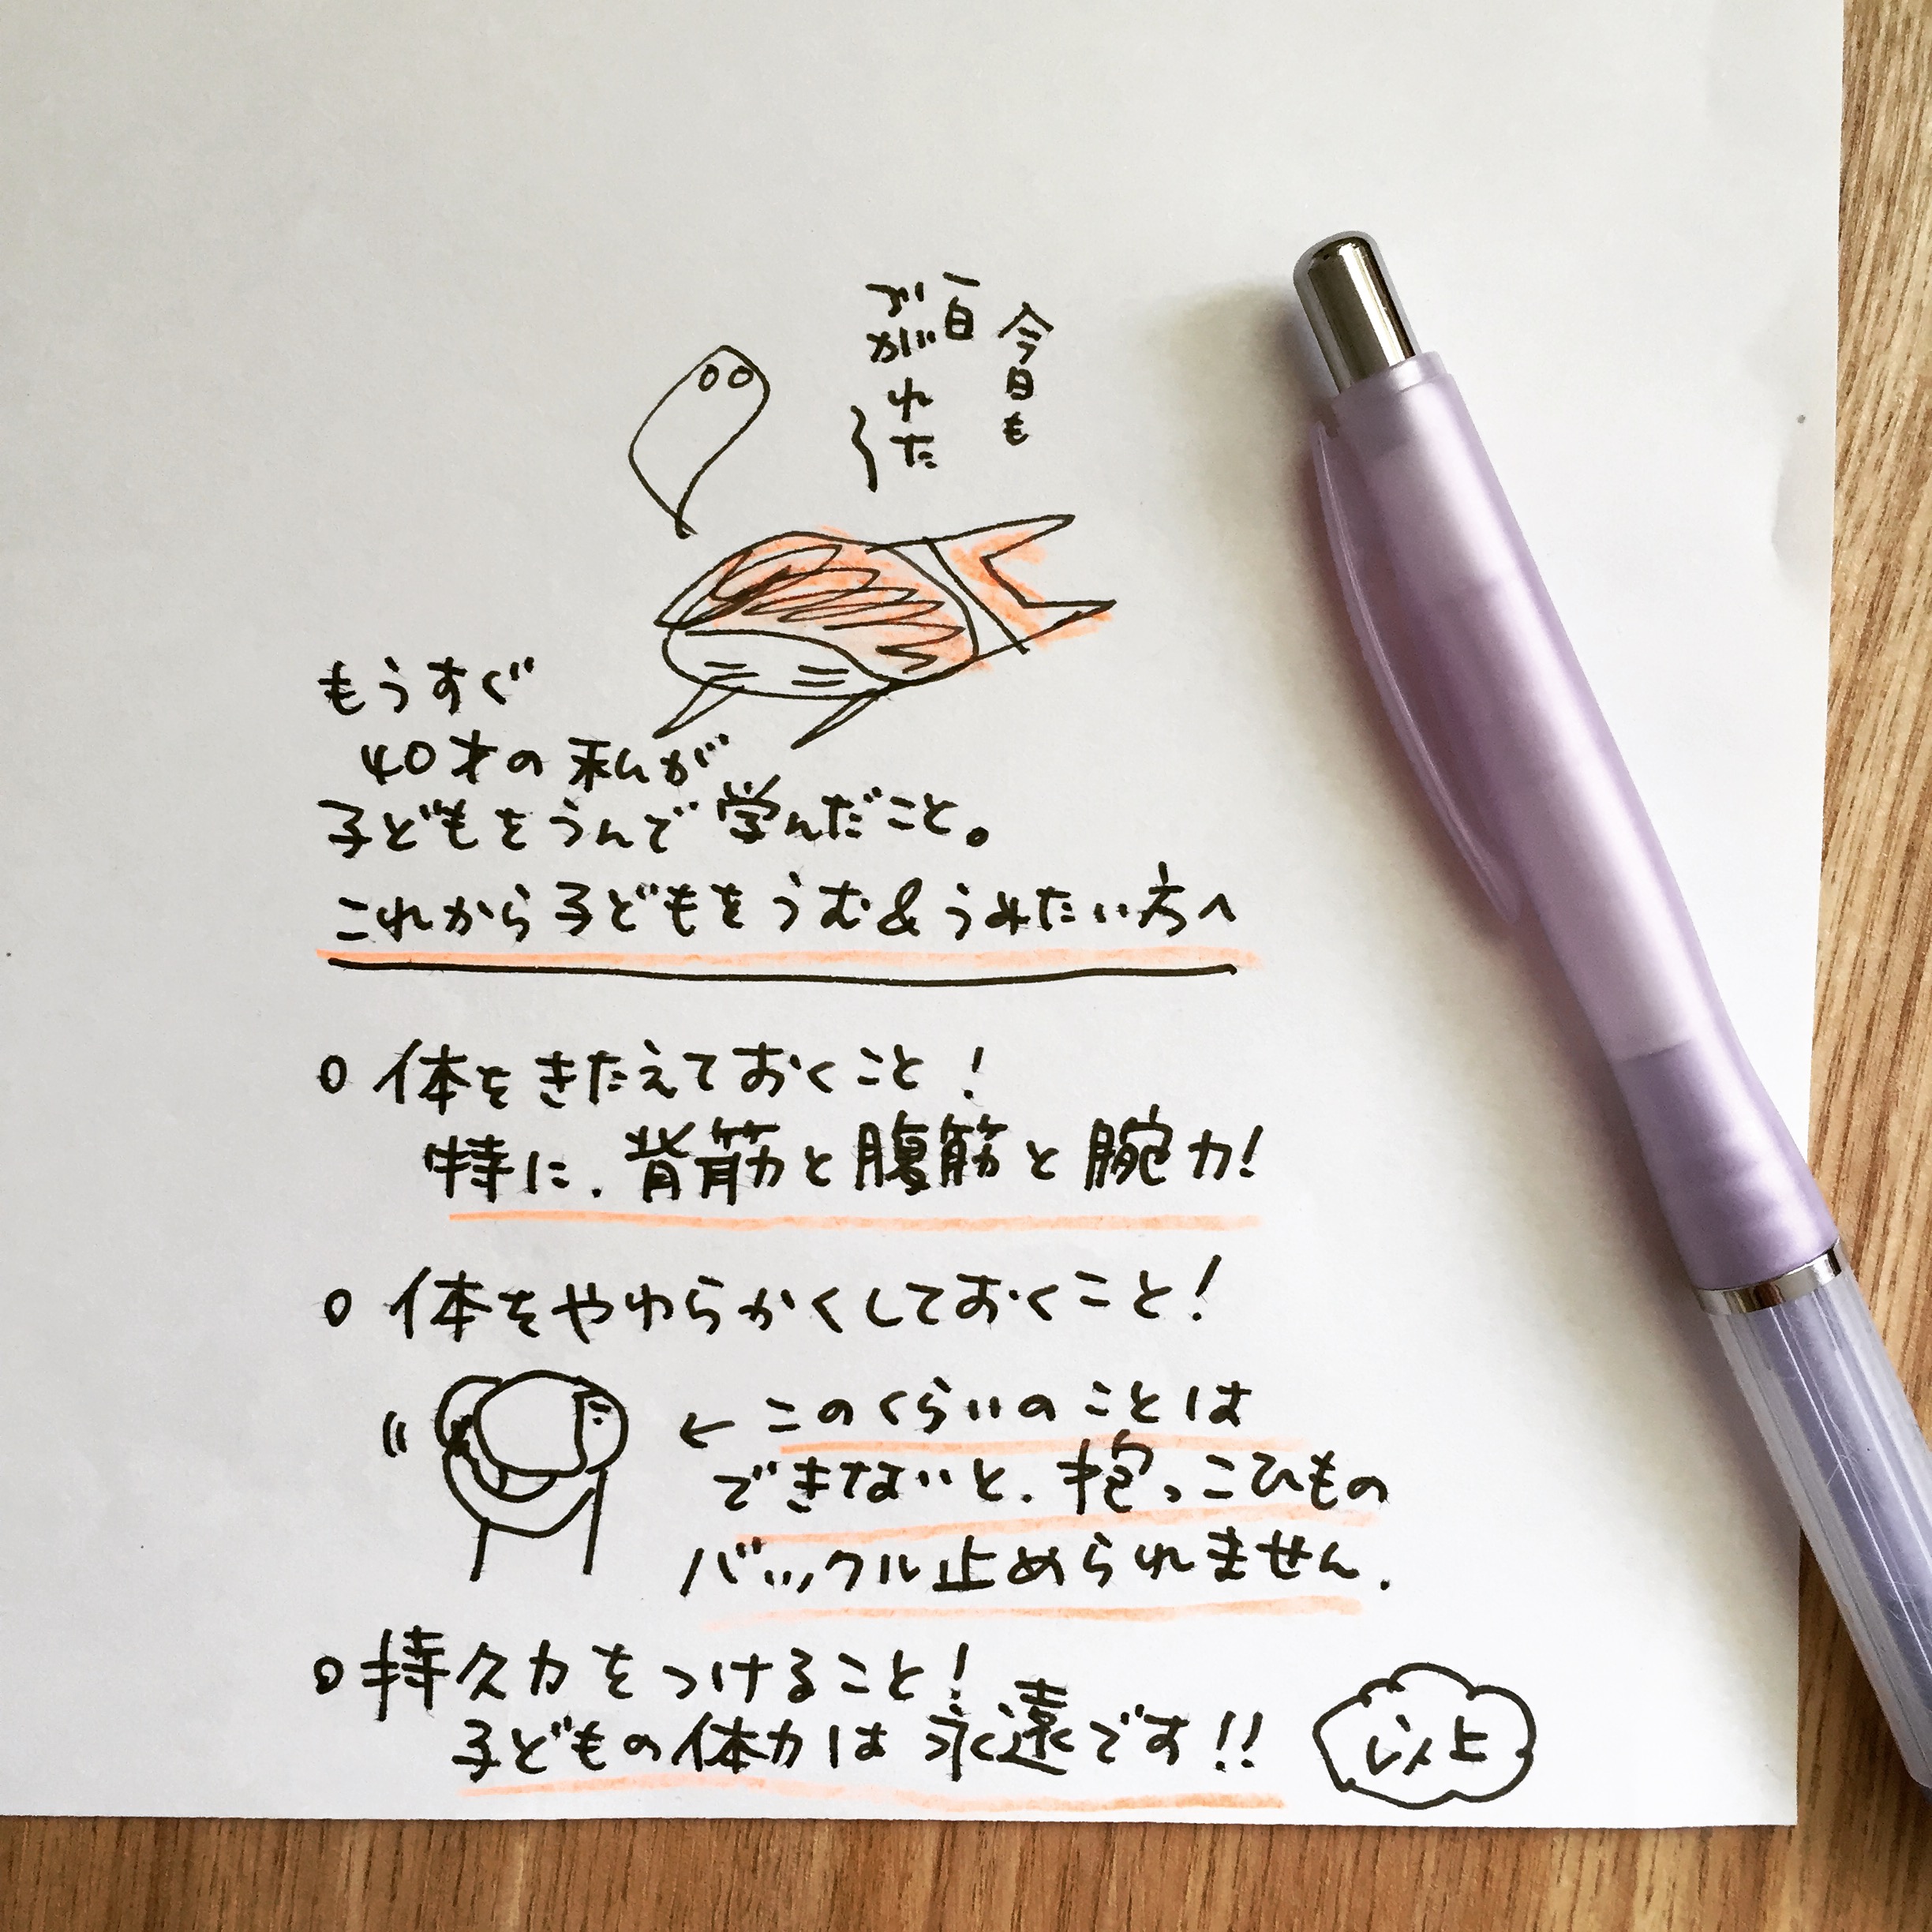 今日も
一日
つかれた〜
もうすぐ
40才の私が
子どもをうんで学んだこと。
これから子どもをうむ&うみたい方へ
○ 体をきたえておくこと!
特に、背筋と腹筋と腕力!
○ 体をやわらかくしておくこと!
← このくらいのことは
できないと、抱っこひもの
バックル止められません。
○ 持久力をつけること!
子どもの体力は永遠です!!
以上